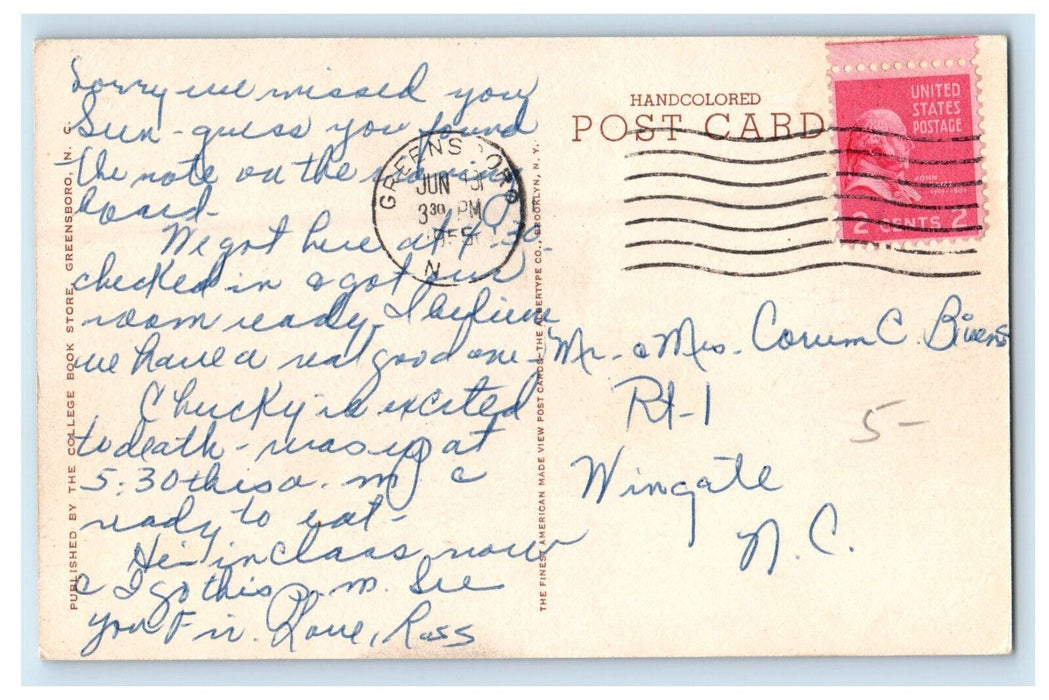 Sorry we missed you
Sun - guess you found
the note on the ironing
board -
We got here at 4:30 -
checked in & got our
room ready, I believe
we have a real good one -
Chucky is excited
to death - was up at
5:30 this a. m. &
ready to eat -
He is in class now
& I go this p.m. See
you Fri. Love, Ross
PUBLISHED BY THE COLLEGE BOOK STORE, GREENSBORO, N. C.
THE FINEST AMERICAN MADE VIEW POST CARDS - THE ALBERTYPE CO., BROOKLYN, N. Y.
HANDCOLORED
POST CARD
GREENSBORO
JUN
3 30 PM
195
N
UNITED
STATES
POSTAGE
JOHN
2 CENTS 2
Mr. & Mrs. Corum C. Bivens
Rt-1
Wingate
N. C.
5-